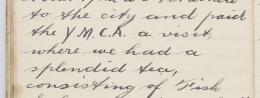 to the city and paid
the Y.M.C.A. a visit,
where we had a
splendid tea,
consisting of Fish